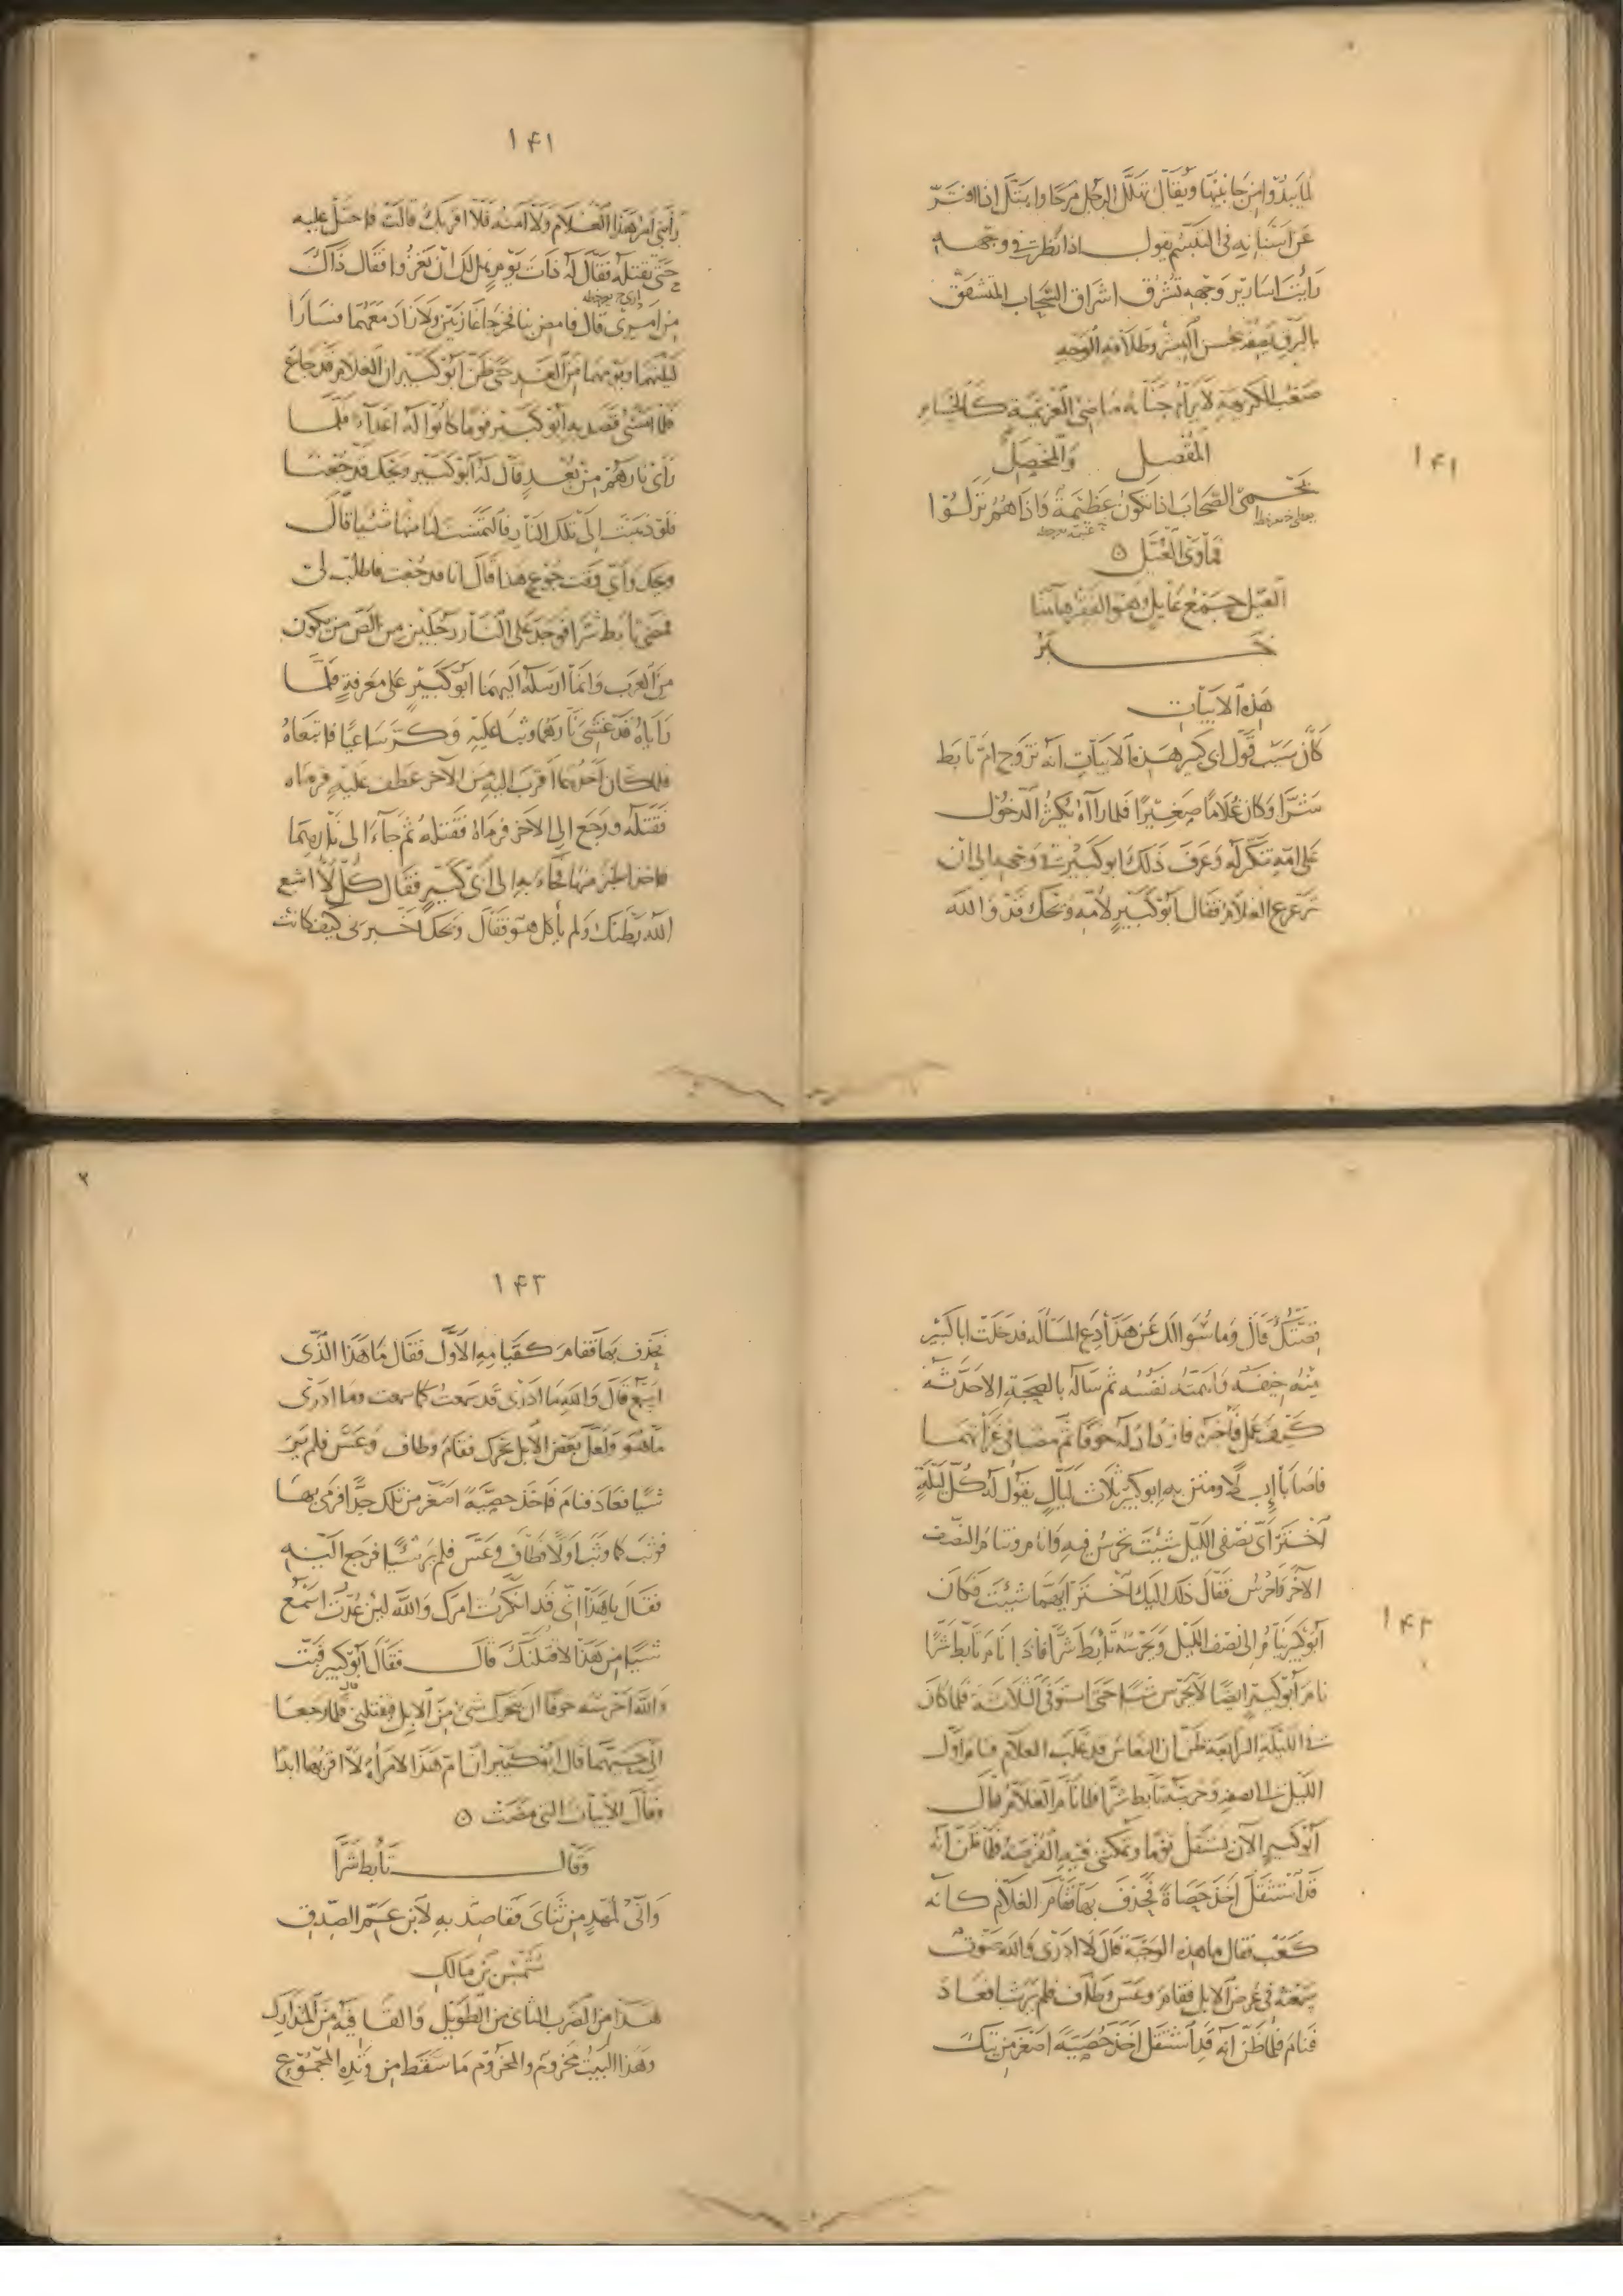 لما يبدوا من جانبيها ويقال تهلل الرجل مرحا وابتل اذا افتر
عن اسنانه فى التبسم يقول اذا نظرت فى وجهه
رايت اسارير وجهه تشرق اشراق السحاب المتشقق
بالبرق يصفه بحسن البشر وطلاقة الوجه
صعب الكريهة لا يرام جنابه ماضى العزيمة كالحسام
المقصل والمخصل
يحمى الصحاب اذا تكون عظيمة واذا هم نزلوا
فماوى العيل ن
العيل جمع عايل وهو الفقير هاهنا
خبر
هذه الابيات
كان سبب قول ابى كبير هذه الابيات انه تزوج ام تابط
شرا وكان غلاما صغيرا فلما راه يكثر الدخول
على امه تنكر له وعرف ذلك ابو كبير فى وجهه الى ان
ترعرع الغلام فقال ابو كبير لامه ويحك قد والله
۱۴۱
۱۴۱
رابنى امر هذا الغلام ولا آمنه فلا اقربك قالت فاحتل عليه
حتى تقتله فقال له ذات يوم هل لك ان تغزوا فقال ذاك
من امرى قال فامض بنا فخرجا غازيين ولا زاد معهما فسارا
ليلتهما ويومهما من الغد حتى ظن ابو كبير ان الغلام قد جاع
فلما امسى قصد به ابو كبير قوما كانوا له اعداء فلما
راى نارهم من بعد قال له ابو كبير ويحك قد جعنا
فلو ذهبت الى تلك النار فالتمست لنا منها شيئا قال
ويحك واى وقت جوع هذا قال انا قد جعت فاطلب لى
فمضى تابط شرا فوجد على النار رجلين من الص من يكون
من العرب وانما ارسله اليهما ابو كبير على معرفة فلما
راياه قد غشى نارهما وثبا عليه وكر ساعيا فاتبعاه
فلما كان احدهما اقرب اليه من الآخر عطف عليه فرماه
فقتله ورجع الى الآخر فرماه فقتله ثم جاء الى نارهما
فاخذ الخبز منها فجاء به الى ابى كبير فقال كل لا اشبع
الله بطنك ولم ياكل هو فقال ويحك اخبرنى كيف كانت
قصتك قال وما سوالك عن هذا دع المسالة فدخلت ابا كبير
منه خيفة واهمته نفسه ثم ساله بالصحبة الا حدثه
كيف عمل فاخبره فازداد له خوفا ثم مضيا فى غزاتهما
فاصابا ابلا ومتن به ابو كبير ثلاث ليال يقول له كل ليلة
اختر اى نصفى الليل شئت تحرس فيه وانام وتنام النصف
الآخر واحرس فقال ذلك اليك اختر ايهما شئت فكان
ابو كبير ينام الى نصف الليل ويحرسه تابط شرا فاذا نام تابط شرا
نام ابو كبير ايضا لا يحرس شيئا حتى استوفى الثلاثة فلما كان
فى الليلة الرابعة ظن ان النعاس قد غلب الغلام فنام اول
الليل الى نصفه وحرسه تابط شرا فلما نام الغلام قال
ابو كبير الآن يستثقل نوما وتمكننى فيه الفرصة فلما ظن انه
قد استثقل اخذ حصاة فحذف بها فقام الغلام كانه
كعب فقال ما هذه الوجبة قال لا ادرى والله صوت
سمعته فى عرض الابل فقام وعس وطاف فلم ير شيئا فعاد
فنام فلما ظن انه قد استثقل اخذ حصية اصغر من تلك
۱۴۲
۱۴۳
فحذف بها فقام كقيامه الاول فقال ما هذا الذى
اسمع قال والله ما ادرى قد سمعت كما سمعت وما ادرى
ما هو ولعل بعض الابل تحرك فقام وطاف وعس فلم ير
شيئا فعاد فنام فاخذ حصية اصغر من تلك جدا فرمى بها
فوثب كما وثب اولا وطاف وعس فلم ير شيئا فرجع اليه
فقال يا هذا انى قد انكرت امرك والله لئن عدت اسمع
شيئا من هذا لاقتلنك قال فقال ابو كبير فبت
والله احرسه خوفا ان يتحرك شى من الابل فيقتلنى قال فلما رجعا
الى حيهما قال ابو كبير ان ام هذا لامراة لا اقربها ابدا
وقال الابيات التى مضت ن
وقال تابط شرا
وانى لمهد من ثناى فقاصد به لابن عم الصدق
شمس بن مالك
هذا من الضرب الثانى من الطويل والقافية من المتدارك
وهذا البيت مخروم والمخروم ما سقط من وتده المجموع